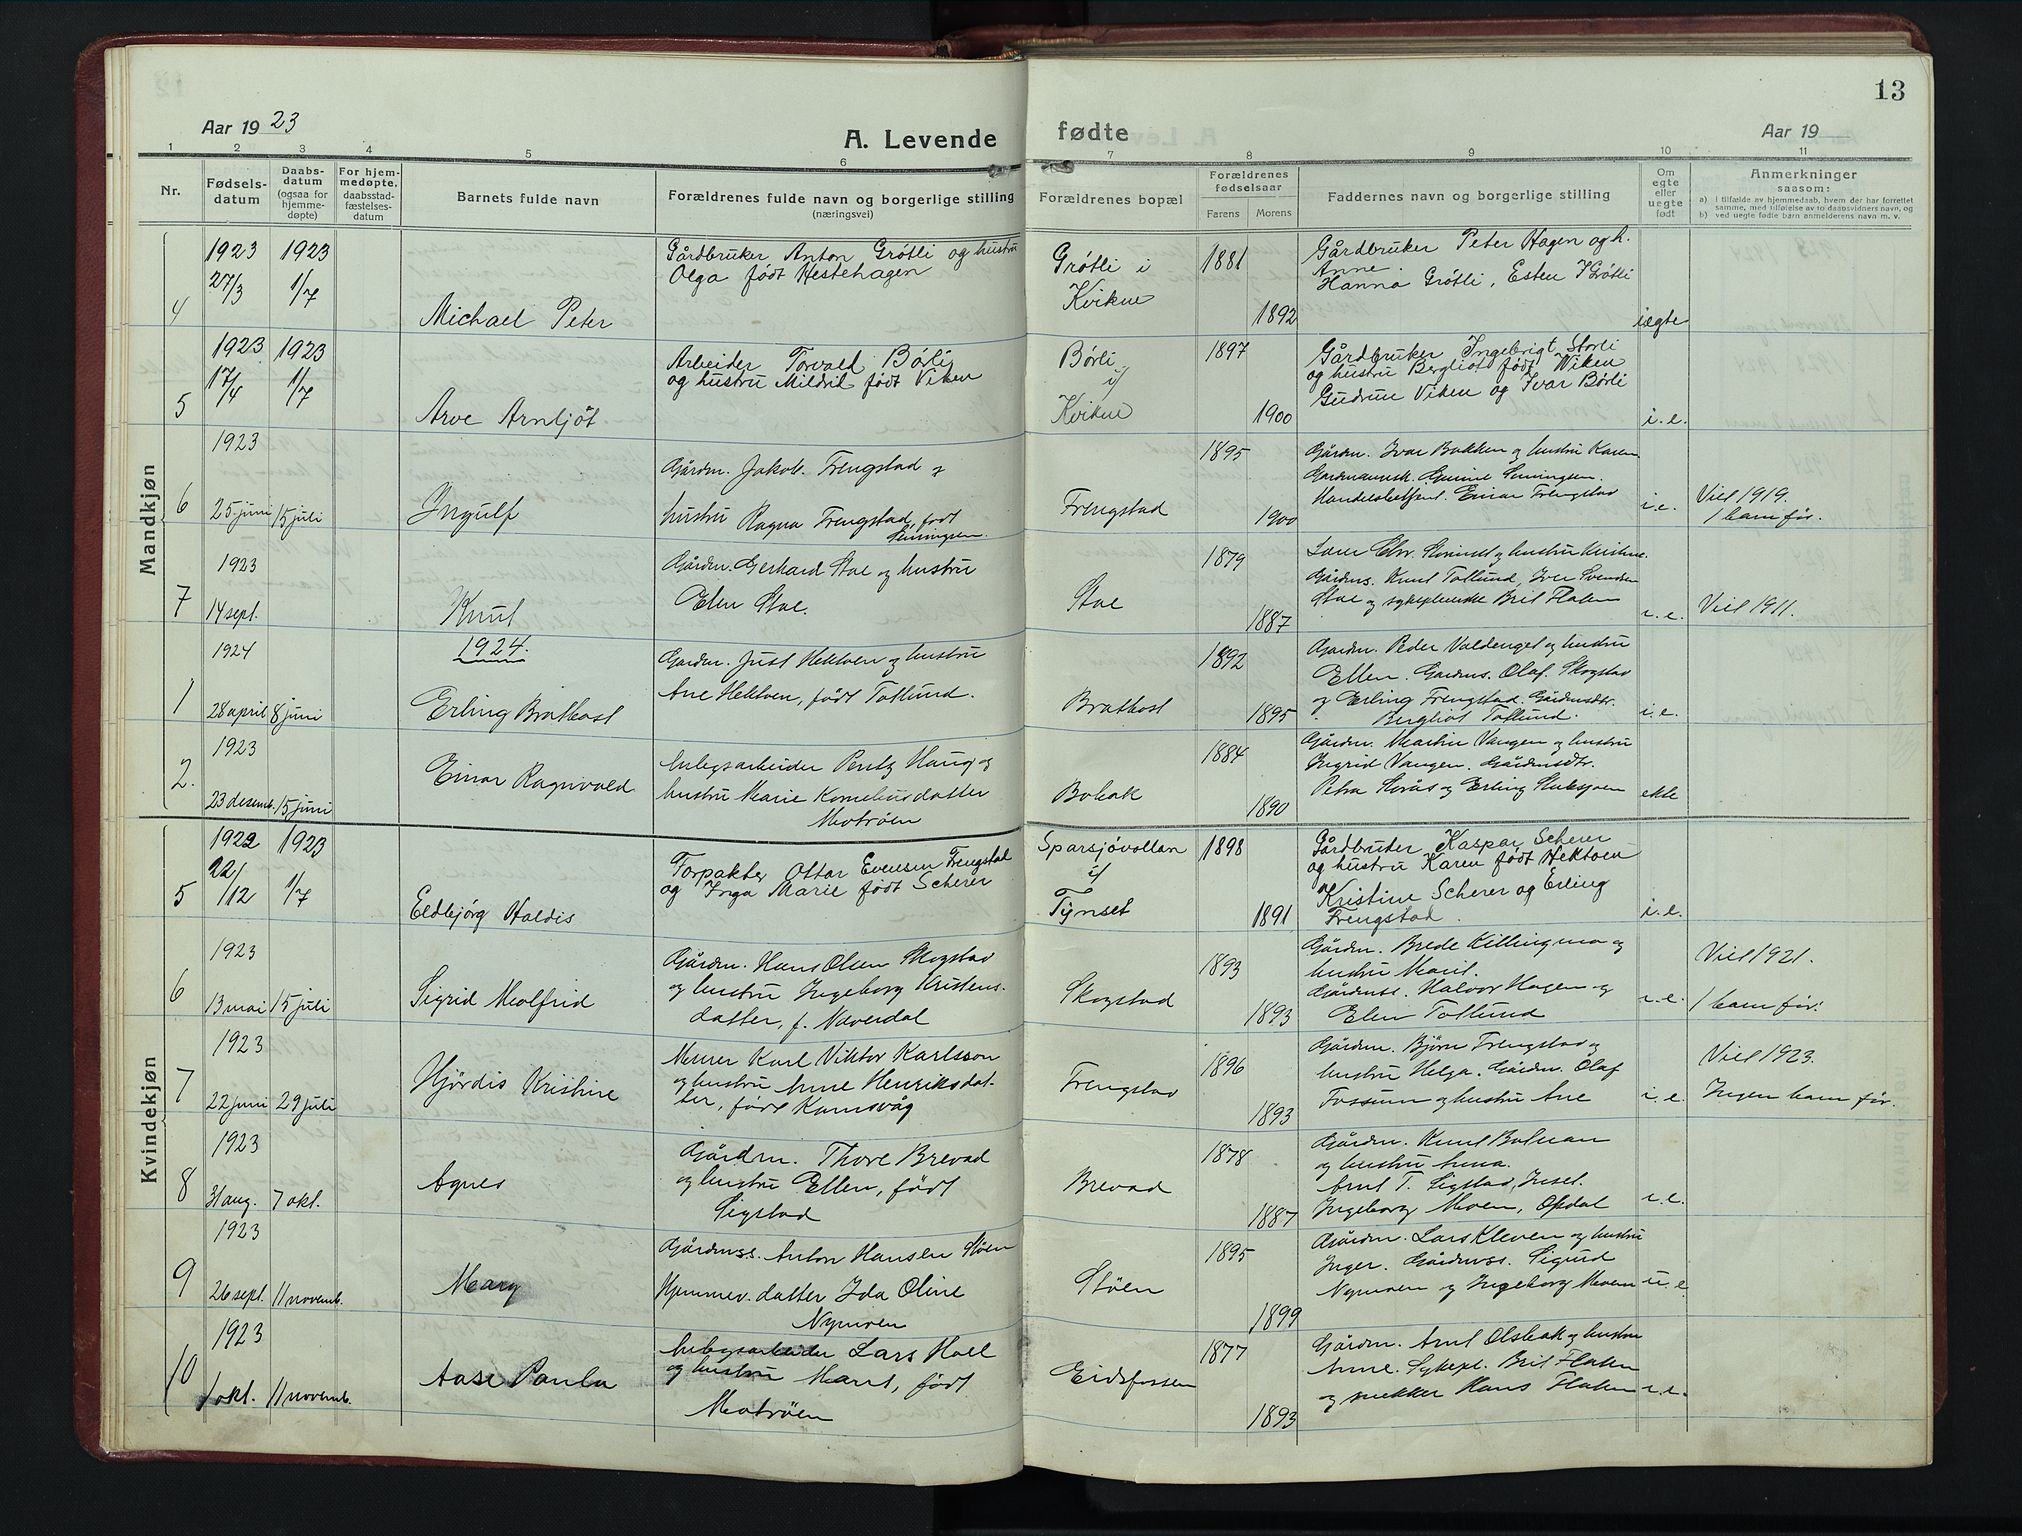 13
Aar 1923
A. Levende fødte
Aar 19
1 2 3 4 5 6 7 8 9 10 11
Nr.
Fødsels-
datum
Daabs-
datum
(ogsaa for
hjemme-
døpte)
For hjem-
medøpte,
daabsstad-
fæstelses-
datum
Barnets fulde navn
Forældrenes fulde navn og borgerlige stilling
(næringsvei)
Forældrenes bopæl
Forældrenes
fødselsaar
Farens
Morens
Faddernes navn og borgerlige stilling
Om
egte
eller
uegte
født
Anmerkninger
saasom:
a) I tilfælde av hjemmedaab, hvem der har forrettet
samme, med tilføielse av to daabsvidners navn, og
b) ved uegte fødte barn anmelderens navn m. v.
Mandkjøn
4
1923
27/3
1923
1/7
Michael Peter
Gårdbruker Anton Grötli og hustru
Olga født Hestehagen
Grötli i
Kvikne
1881
1892
Gårdbruker Peter Hagen og h.
Anne.
Hanna Grötli, Esten Grötli
iægte
5
1923
17/4
1923
1/7
Arve Arnljöt
Arbeider Torvald Börli
og hustru Mildrid født Viken
Börli
i
Kvikne
1897
1900
Gårdbruker Ingebrigt Storli
og hustru Bergliot født Viken
Gudrun Viken og Ivar Börli
i.e.
6
1923
25 juni
15 juli
Ingulf
Gårdm. Jakob Frengstad og
hustru Ragna Frengstad, født
Semingsen.
Frengstad
1895
1900
Gårdm. Ivar Bakken og hustru Karen
Gunnar Semingsen.
Handelsbetjent. Einar Frengstad
i.e.
Viel 1919.
1 barn før.
7
1923
14 sept.
Knut
Gårdm. Gerhard Stae og hustru
Elen Stae.
Stae
1879
1887
og hustru Kristine.
Gårdms. Knut Tollund, Iver Svendsen
Stae og sykepleierske Brit Flaten
i.e.
Viel 1911.
1924.
1
1924
28 april
8 juni
Erling Brathost
Gårdm. Just Hektoen og hustru
Ane Hektoen, født Tollund.
Brathost
1892
1895
Gårdm. Peder Valdenget og hustru
Ellen. Gårdms. Olaf Skogstad
og Erling Frengstad. Gårdmdtr.
Bergliot Toflund.
i.e.
2.
1923
23 desemb.
15 juni
Einar Ragnvald
Anlegsarbeider Pentz Haug og
hustru Marie Korneliusdatter
Motröen
Bobak
1884
1890
Gårdm. Martin Vangen og hustru
Ingrid Vangen. Gårdmdtr.
Petra Storås og Erling Stubsjoen
ekte
Kvindekjøn
5
1922
22/12
1923
1/7
Eldbjörg Haldis
Forpakter Ottar Evensen Frengstad
og Inga Marie født Scherer
Sparsjövollan
i
Tynset
1898
1891
Gårdbruker Kaspar Scherer
og hustru Karen født Hektoen
Kristine Scherer og Erling
Frengstad.
i.e.
6
1923
13 mai
15 juli
Sigrid Malfrid
Gårdm. Hans Olsen Skogstad
og hustru Ingeborg Kristens-
datter, f. Naverdal
Skogstad
1893
1893
Gårdm. Brede Killingmo og
hustru Marit.
Gårdmss. Halvor Hagen og
Elen Tollund
i.e.
Viel 1921.
1 barn før.
7
1923
22 juni
29 juli
Hjördis Kristine
Murer Karl Viktor Karlsson
og hustru Anne Henriksdat-
ter, født Kamsvåg
Frengstad
1896
1893
Gårdm. Björn Frengstad og
hustru Helga. Gårdm. Olaf
Fossum og hustru Ane
i.e.
Viel 1923.
Ingen barn før.
8
1923
31 aug.
7 okt.
Agnes
Gårdm. Thore Brevad
og hustru Ellen, født
Sigstad
Brevad
1878
1887
Gårdm. Knut Bolman
og hustru Anna.
Arnt T. Sigstad, Inset.
Ingeborg Moen, Opdal
i.e.
9
1923
26 sept.
11 novemb.
Mary
Gårdmss. Anton Hansen Stöen
datter Ida Oline
Nymoen
Stöen
1895
1899
Gårdm. Lars Kleven og hustru
Inger. Gårdmss. Sigurd
Nymoen og Ingeborg Moen
u.e.
10
1923
1 okt.
11 novemb.
Aase Paula
Anlegsarbeider Lars Hoel
og hustru Marit, født
Motröen
Eidsfossen
1877
1893
Gårdm. Arnt Olsbak og hustru
Anne. Sykepl. Brit Flaten
og snekker Hans Flaten
i.e.